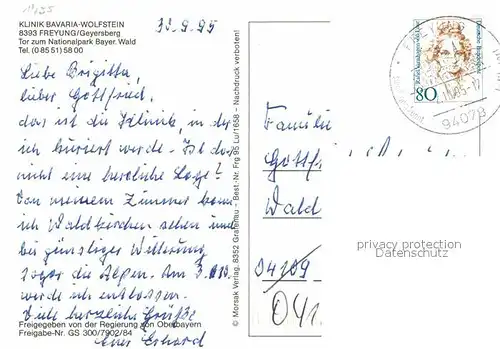 11155
KLINIK BAVARIA-WOLFSTEIN
8393 FREYUNG/Geyersberg
Tor zum Nationalpark Bayer. Wald
Tel. (0 85 51) 58 00
30.9.95
Liebe Brigitta,
lieber Gottfried,
das ist die Klinik, in der
ich kuriert werde. Ist das
nicht eine herrliche Lage?
Von meinem Zimmer kann
ich Waldkirchen sehen und
bei günstiger Witterung
sogar die Alpen. Am 3.10.
werde ich entlassen.
Viele herzliche Grüße
Euer Erhard
Freigegeben von der Regierung von Oberbayern
Freigabe-Nr. GS 300/7902/84
© Morsak Verlag, 8352 Grafenau - Best.-Nr. Frg 95 Lu/1658 - Nachdruck verboten!
80
FREYUNG
94078
Familie
Gottfr
Wald
04109
041
privacy protection
Datenschutz